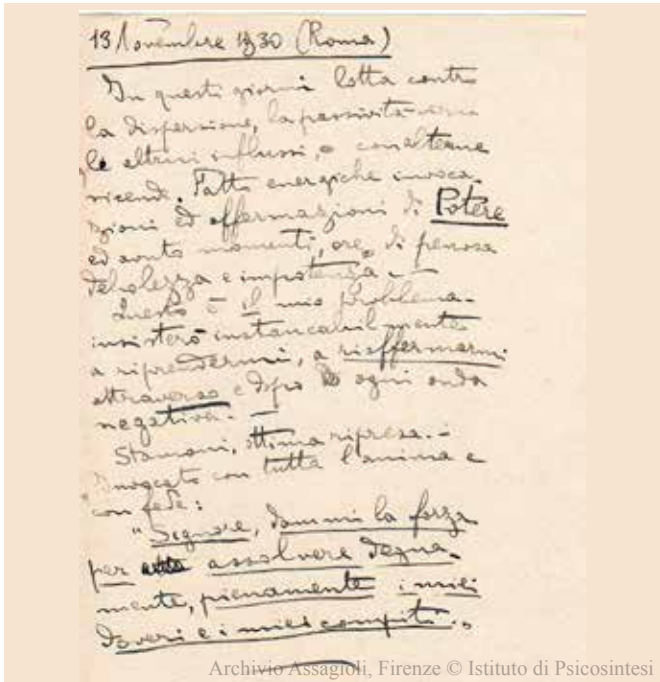 13 Novembre 1930 (Roma)
In questi giorni lotta contro
la dispersione, la passività verso
le altrui influssi, con alterne
vicende. Fatto energiche invoca-
zioni ed affermazioni di Potere
ed avuto momenti, ore, di penosa
debolezza e impotenza. —
Questo è il mio problema.
insisterò instancabilmente
a riprendermi, a riaffermarmi
attraverso e dopo ogni onda
negativa. —
Stamani, ottima ripresa. —
Invocato con tutta l'anima e
con fede:
"Signore, dammi la forza
per assolvere degna-
mente, pienamente i miei
doveri e i miei compiti."
Archivio Assagioli, Firenze © Istituto di Psicosintesi